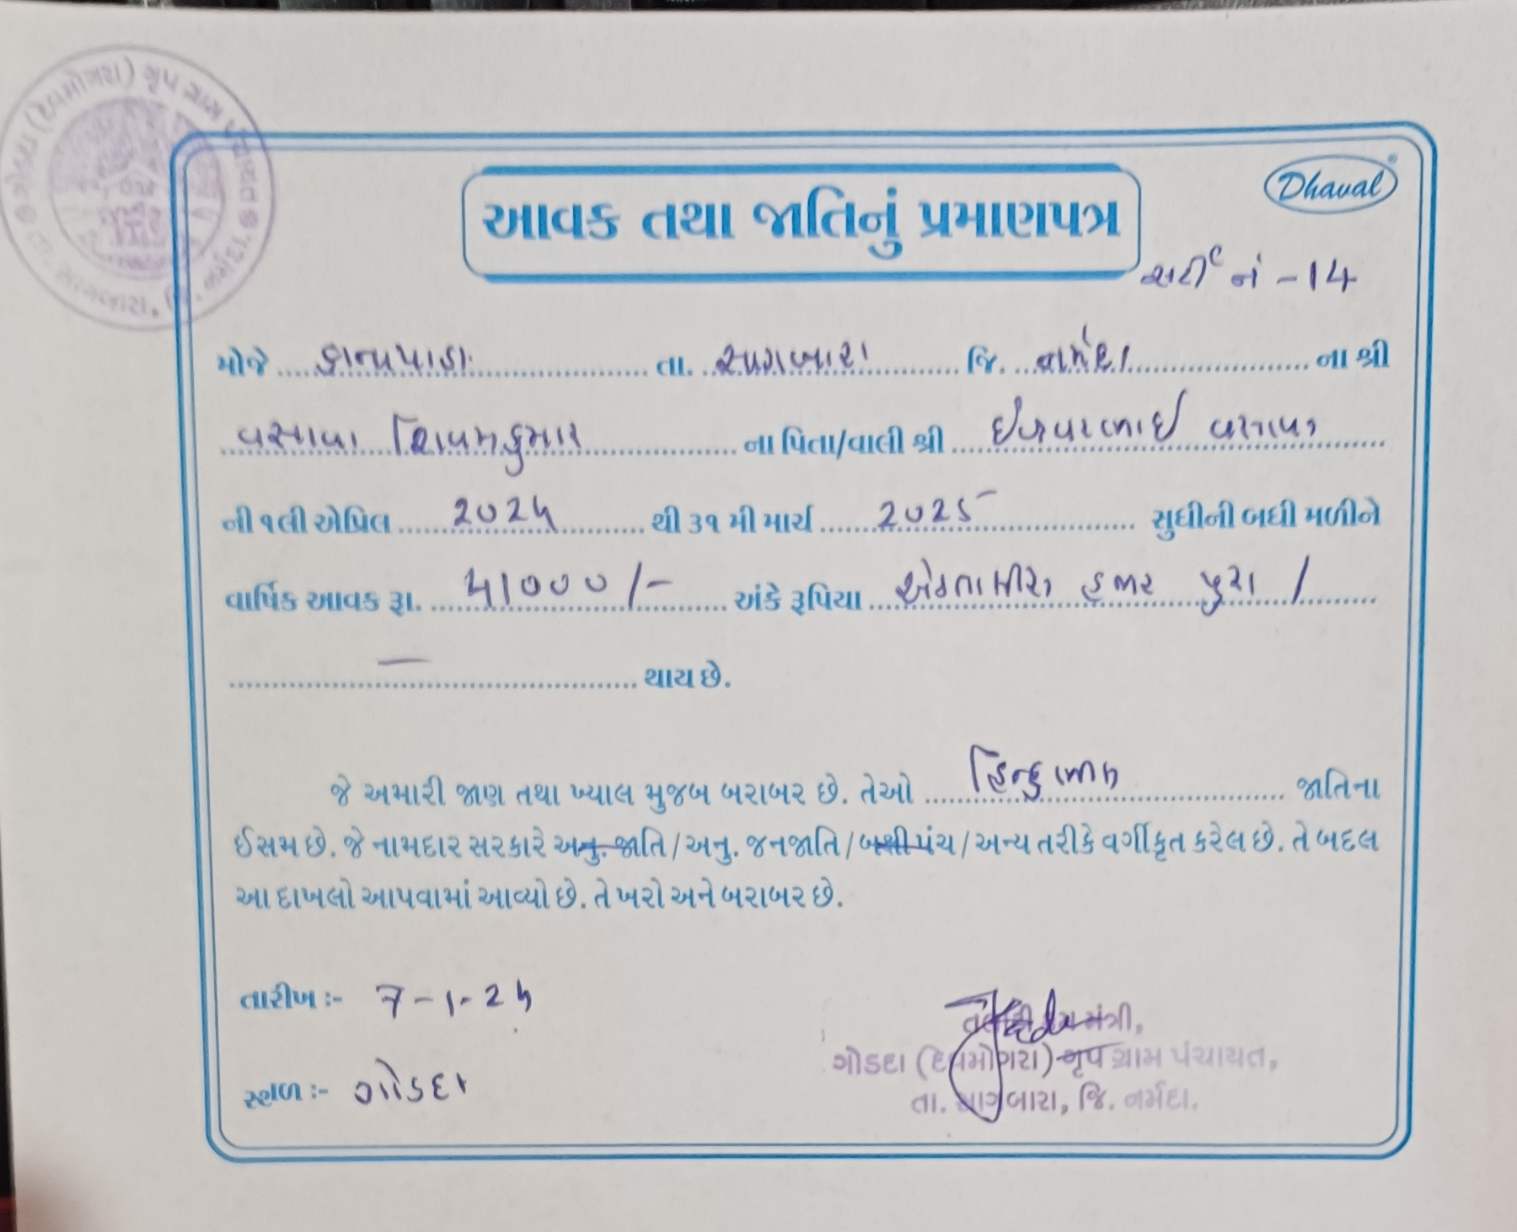 Dhaval
આવક તથા જાતિનું પ્રમાણપત્ર
સર્ટી નં - 14
મોજે ............ તા. સાગબારા જિ. નર્મદા ના શ્રી
વસાવા શિવમકુમાર ના પિતા/વાલી શ્રી ઈશ્વરભાઈ વસાવા
ની ૧લી એપ્રિલ 2024 થી ૩૧ મી માર્ચ 2025 સુધીની બધી મળીને
વાર્ષિક આવક રૂા. 41000/- અંકે રૂપિયા એકતાલીસ હજાર પુરા /
— થાય છે.
જે અમારી જાણ તથા ખ્યાલ મુજબ બરાબર છે. તેઓ હિન્દુ ભીલ જાતિના
ઈસમ છે. જે નામદાર સરકારે અનુ. જાતિ/અનુ. જનજાતિ/બક્ષી પંચ/અન્ય તરીકે વર્ગીકૃત કરેલ છે. તે બદલ
આ દાખલો આપવામાં આવ્યો છે. તે ખરો અને બરાબર છે.
તારીખ :- 7-1-25
સ્થળ :- ગોડદા
તલાટી કમ મંત્રી,
ગોડદા (દેવમોગરા) ગૃપ ગ્રામ પંચાયત,
તા. સાગબારા, જિ. નર્મદા.